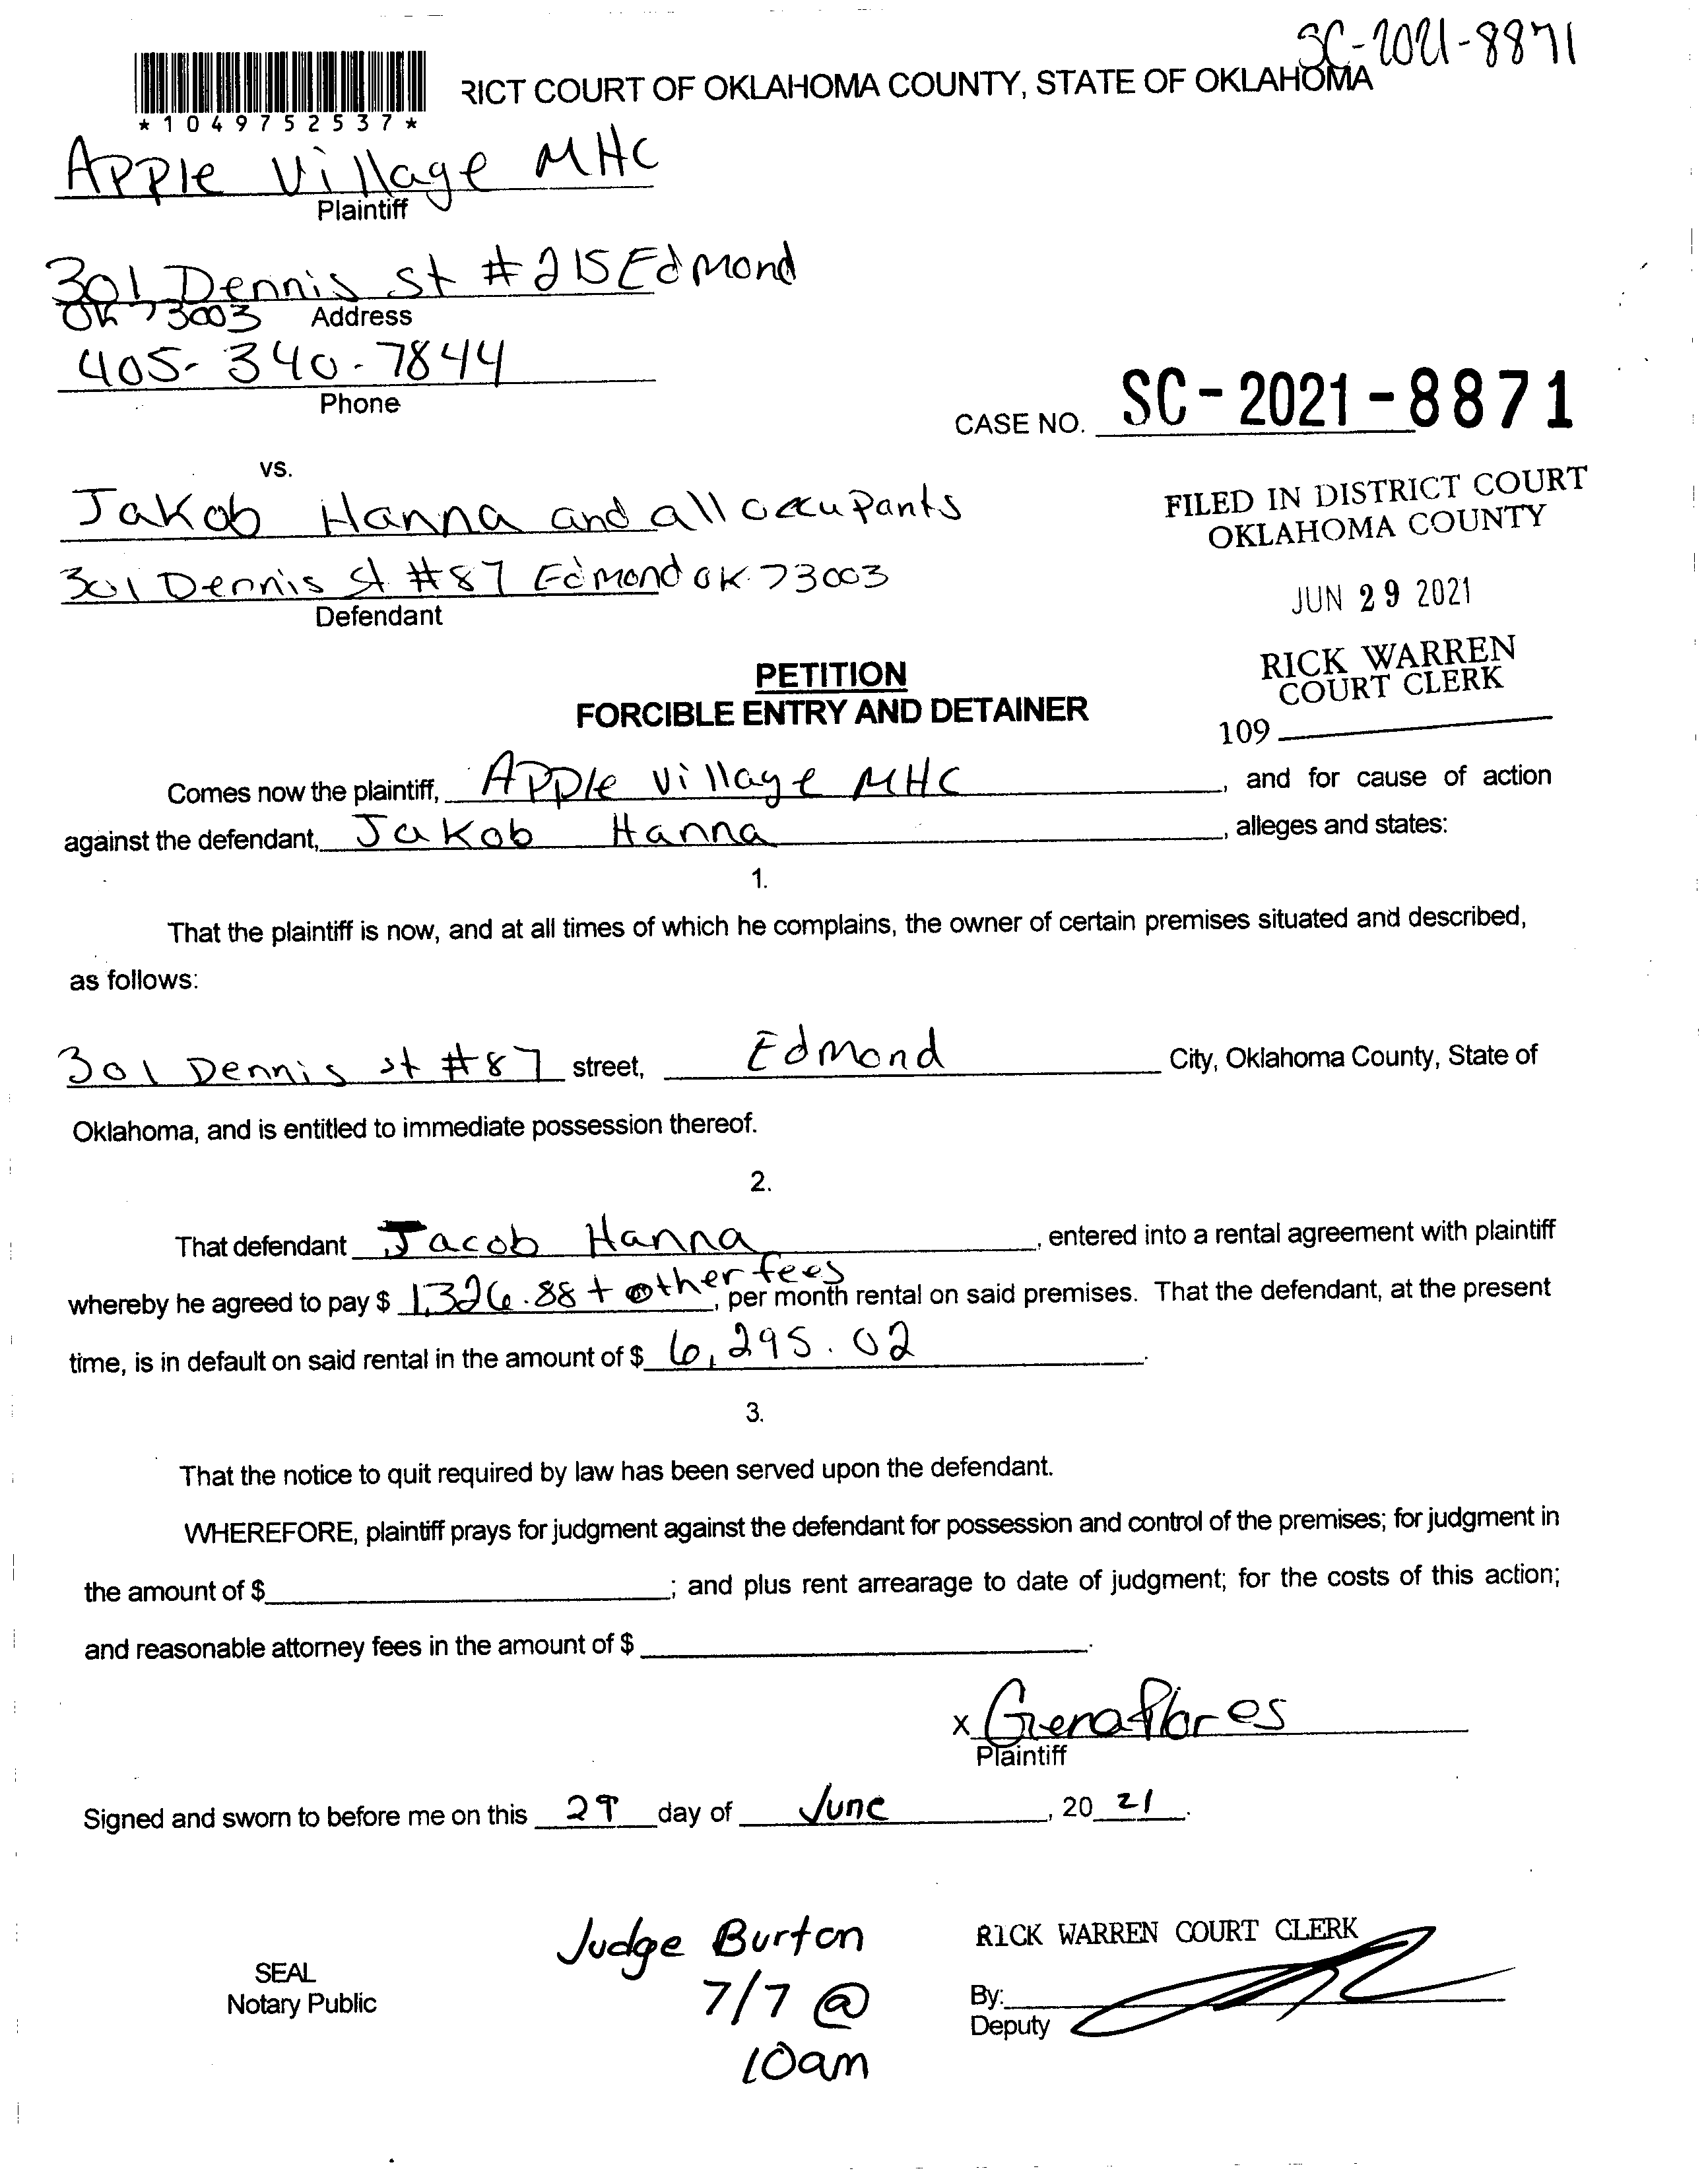 SC-2021-8871
RICT COURT OF OKLAHOMA COUNTY, STATE OF OKLAHOMA
*1049752537*
Apple Village MHC
Plaintiff
301 Dennis st #215 Edmond
OK 73003 Address
405-340-7844
Phone
CASE NO. SC-2021-8871
vs.
Jakob Hanna and all occupants
FILED IN DISTRICT COURT
OKLAHOMA COUNTY
301 Dennis st #87 Edmond OK 73003
Defendant
JUN 29 2021
RICK WARREN
COURT CLERK
109
PETITION
FORCIBLE ENTRY AND DETAINER
Comes now the plaintiff, Apple Village MHC, and for cause of action
against the defendant, Jakob Hanna, alleges and states:
1.
That the plaintiff is now, and at all times of which he complains, the owner of certain premises situated and described,
as follows:
301 Dennis st #87 street, Edmond City, Oklahoma County, State of
Oklahoma, and is entitled to immediate possession thereof.
2.
That defendant Jacob Hanna, entered into a rental agreement with plaintiff
whereby he agreed to pay $ 1,326.88 + other fees, per month rental on said premises. That the defendant, at the present
time, is in default on said rental in the amount of $ 6,295.02.
3.
That the notice to quit required by law has been served upon the defendant.
WHEREFORE, plaintiff prays for judgment against the defendant for possession and control of the premises; for judgment in
the amount of $ ; and plus rent arrearage to date of judgment; for the costs of this action;
and reasonable attorney fees in the amount of $ .
x Gena Flores
Plaintiff
Signed and sworn to before me on this 29 day of June, 20 21.
SEAL
Notary Public
Judge Burton
7/7 @
10am
RICK WARREN COURT CLERK
By:
Deputy